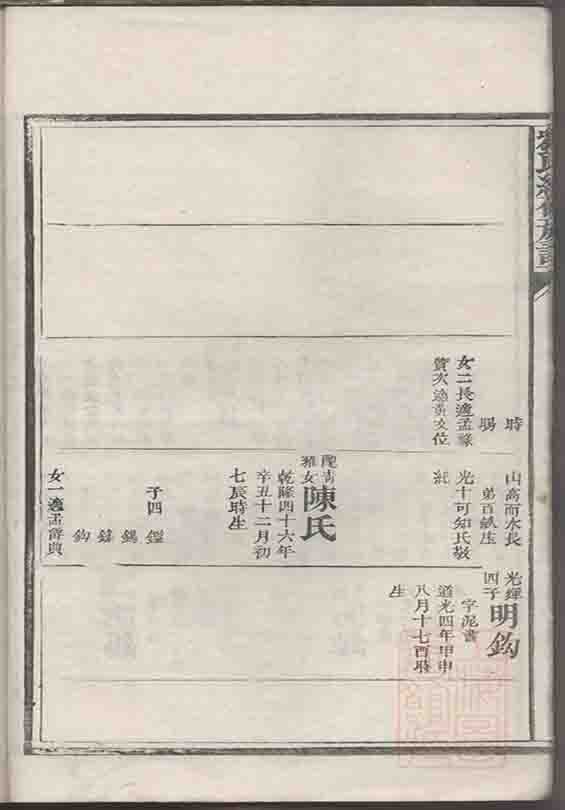 氏續修族譜
時
賜
女二長適孟
質次適黃文位
山高而水長
弟百
光十可知氏敬
紀
配
女陳氏
乾隆四十六年
辛丑十二月初
七辰時生
子四 鑑
錫
鈞
女一適孟爵典
光輝
四子明鈎
字范書
道光四年甲申
八月十七酉時
生